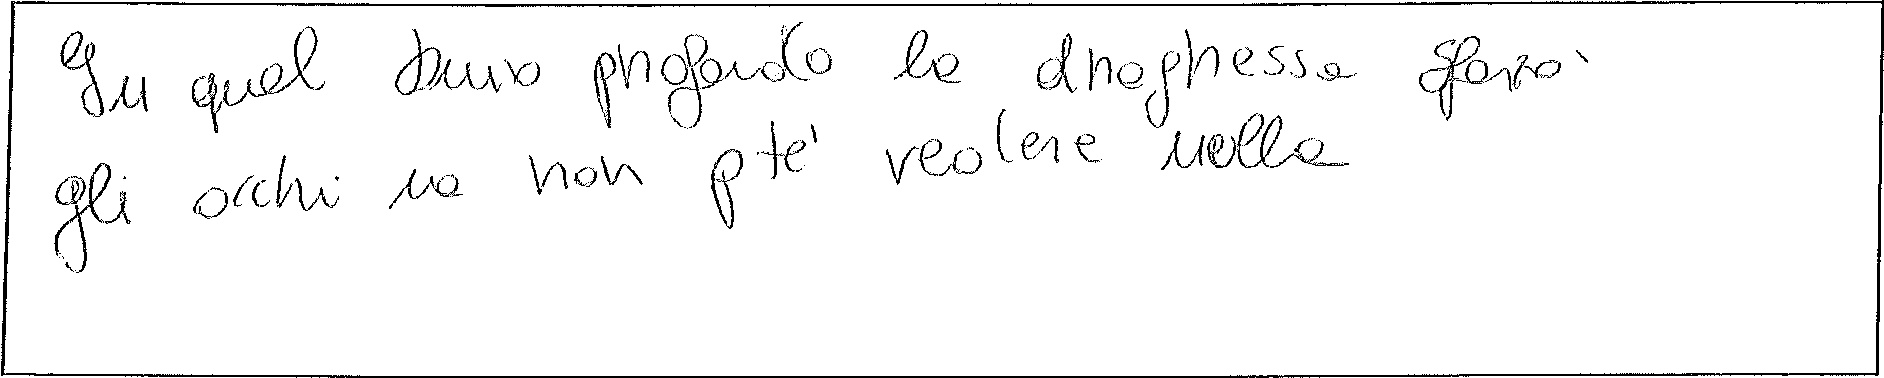 In quel buio profondo la draghessa sforzò
gli occhi ma non pté vedere nulla